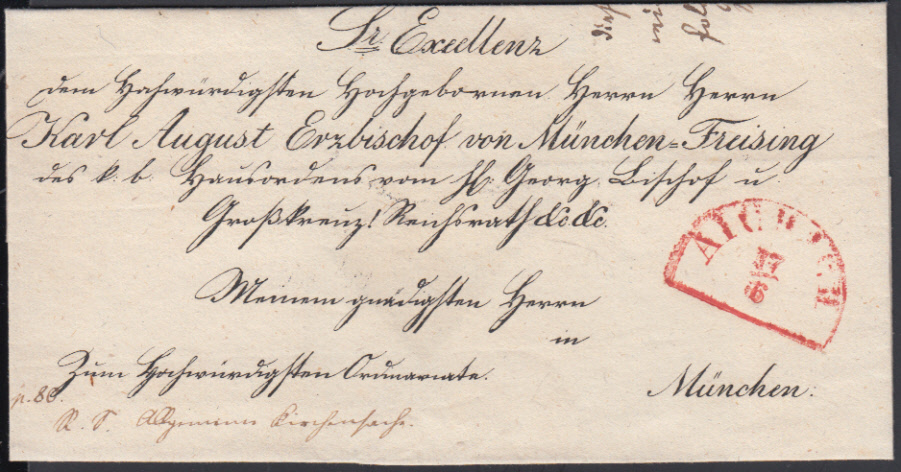 Sr. Excellenz
dem Hochwürdigsten Hochgebornen Herrn Herrn
Karl August Erzbischof von München=Freising
des k. b. Hausordens vom hl. Georg Bischof u.
Großkreuz! Reichsrath &c &c.
Meinem gnädigsten Herrn
in
Zum Hochwürdigsten Ordinariate.
München.
R. S. Allgemeine Kirchensache.
AICHACH
17
6